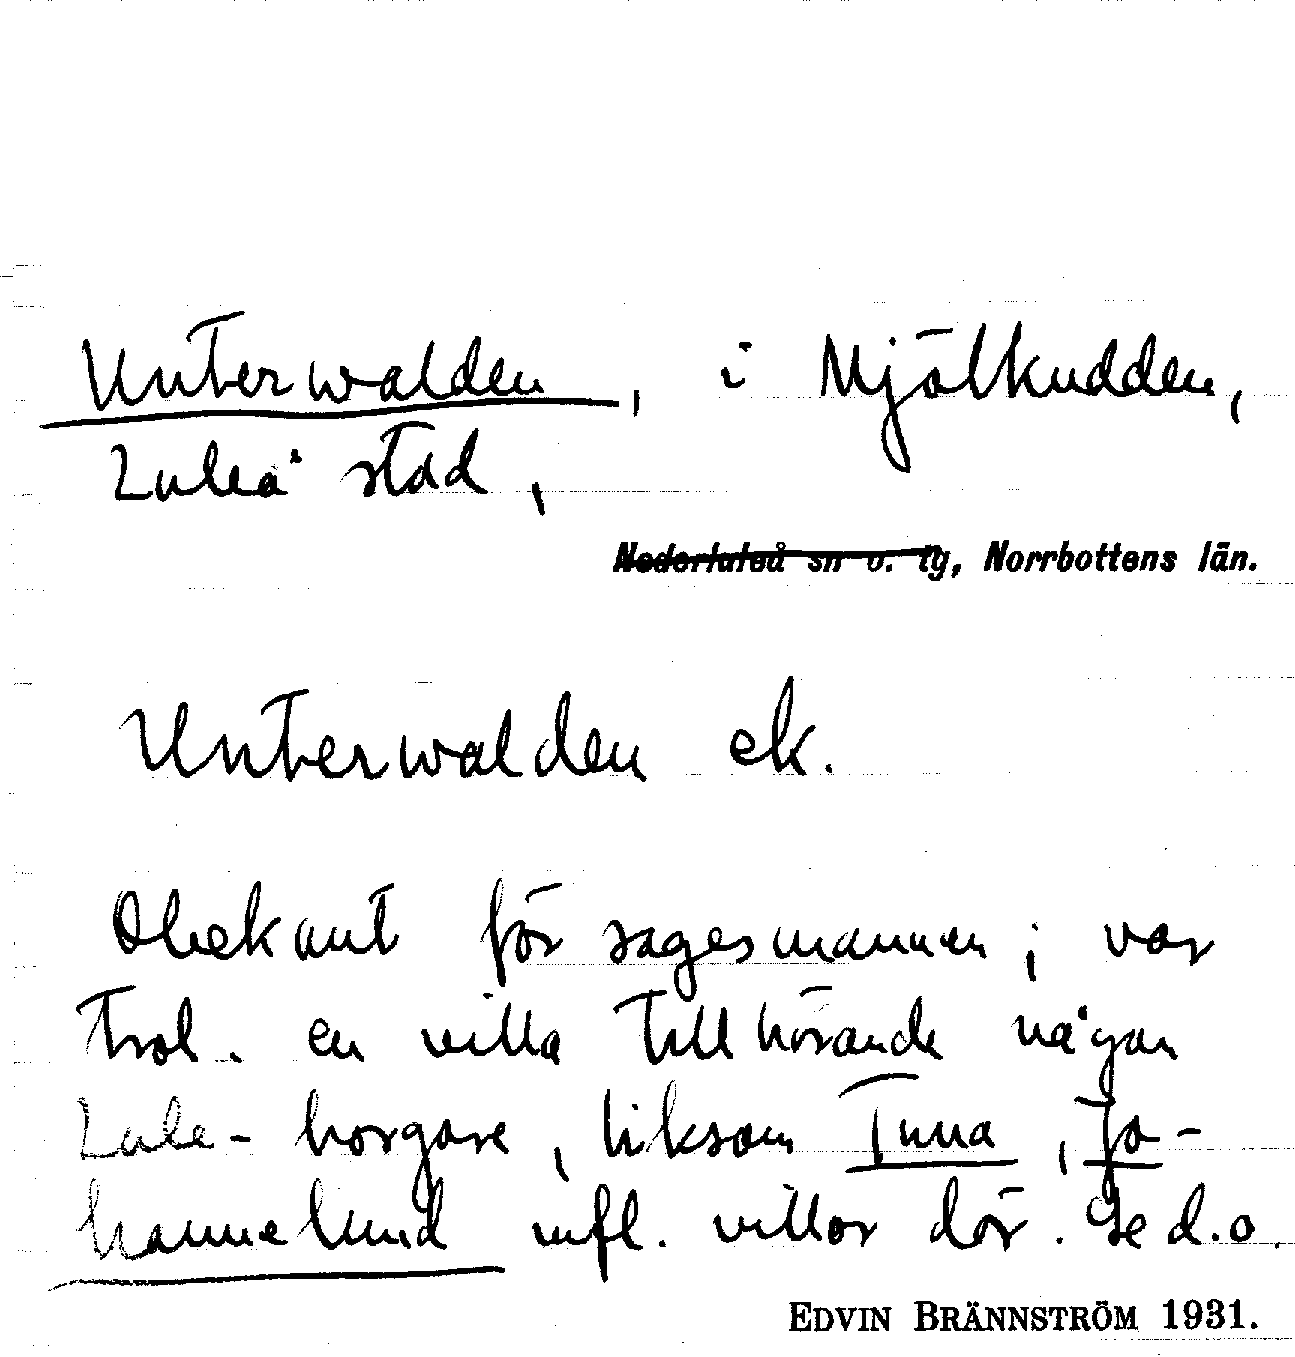 Unterwalden, i Mjölkudden,
Luleå stad,
Nederluleå sn o. tg, Norrbottens län.
Unterwalden ek.
Obekant för sagesmannen; var
trol. en villa tillhörande någon
Lule-borgare, liksom Tuna, Jo-
hannelund mfl. villor där. Se d.o.
EDVIN BRÄNNSTRÖM 1931.